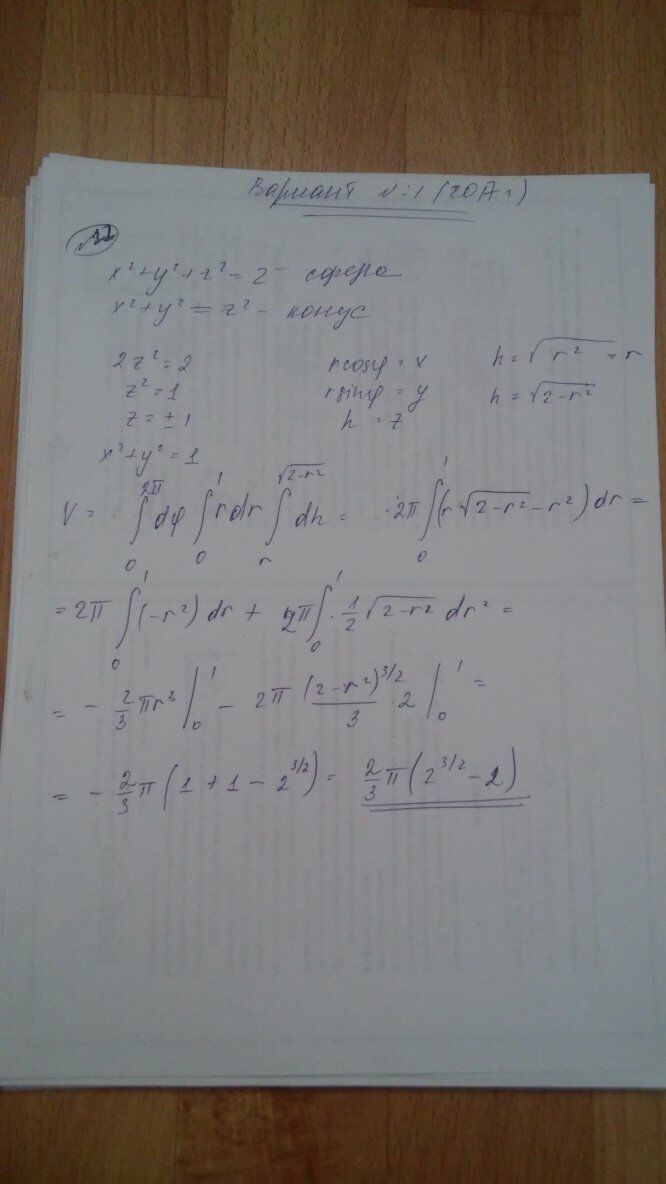 Вариант №1 (2017г)
№2
x²+y²+z²=2 - сфера
x²+y²=z² - конус
2z²=2 rcosφ=x h=√r²=r
z²=1 rsinφ=y h=√2-r²
z=±1 h=z
x²+y²=1
V= ∫₀^2π dφ ∫₀^1 rdr ∫ᵣ^√2-r² dh = 2π ∫₀^1 (r√2-r²-r²)dr=
=2π ∫₀^1 (-r²)dr + 2π ∫₀^1 · 1/2 √2-r² dr²=
= - 2/3 πr³ |₀^1 - 2π (2-r²)^3/2 / 3 · 2 |₀^1 =
= - 2/3 π(1+1-2^3/2)= 2/3 π(2^3/2-2)